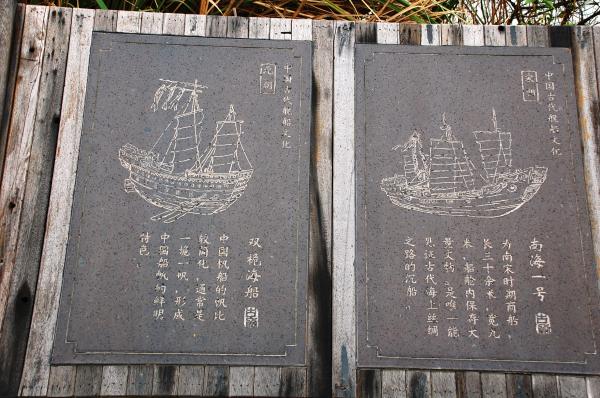 中国古代舰船文化
元朝
双桅海船
中国帆船的帆比
较简化，通常是
一桅一帆，形成
中国船帆的鲜明
特色。
中国古代舰船文化
宋朝
南海一号
为南宋时期商船，
长三十余米，宽九
米，船舱内保存大
量文物，是唯一能
见证古代海上丝绸
之路的沉船。